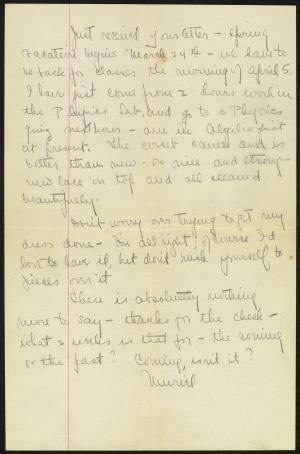 Just received your letter - spring
vacation begins March 24th - we have to
be back for classes the morning of April 5.
I have just come from 2 hours work in
the Physics Lab. and go to a Physics
quiz next hour - am in Algebra just
at present. The corset came and is
better than new - so nice and strong -
new lace on top and all cleaned
beautifully.
Don't worry over trying to get my
dress done - I'm all right; of course I'd
love to have it, but don't rush yourself to
pieces over it
There is absolutely nothing
more to say - thanks for the check -
what 2 weeks is that for - the coming
or the past? Coming, isn't it?
Muriel